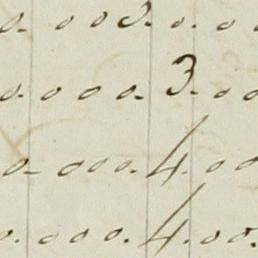 o. o o 3. o. o o
o. o o o. 3. o o
o. o o o. 4. o o
o. o o o. 4. o o.